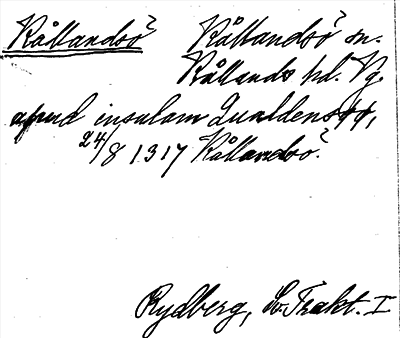 Kållandsö? Kållandsö? sn.
Kållands hd. Vg.
apud insulam Qualdensöö,
24/8 1317 Kållandsö?
Rydberg, Sv. Trakt. I